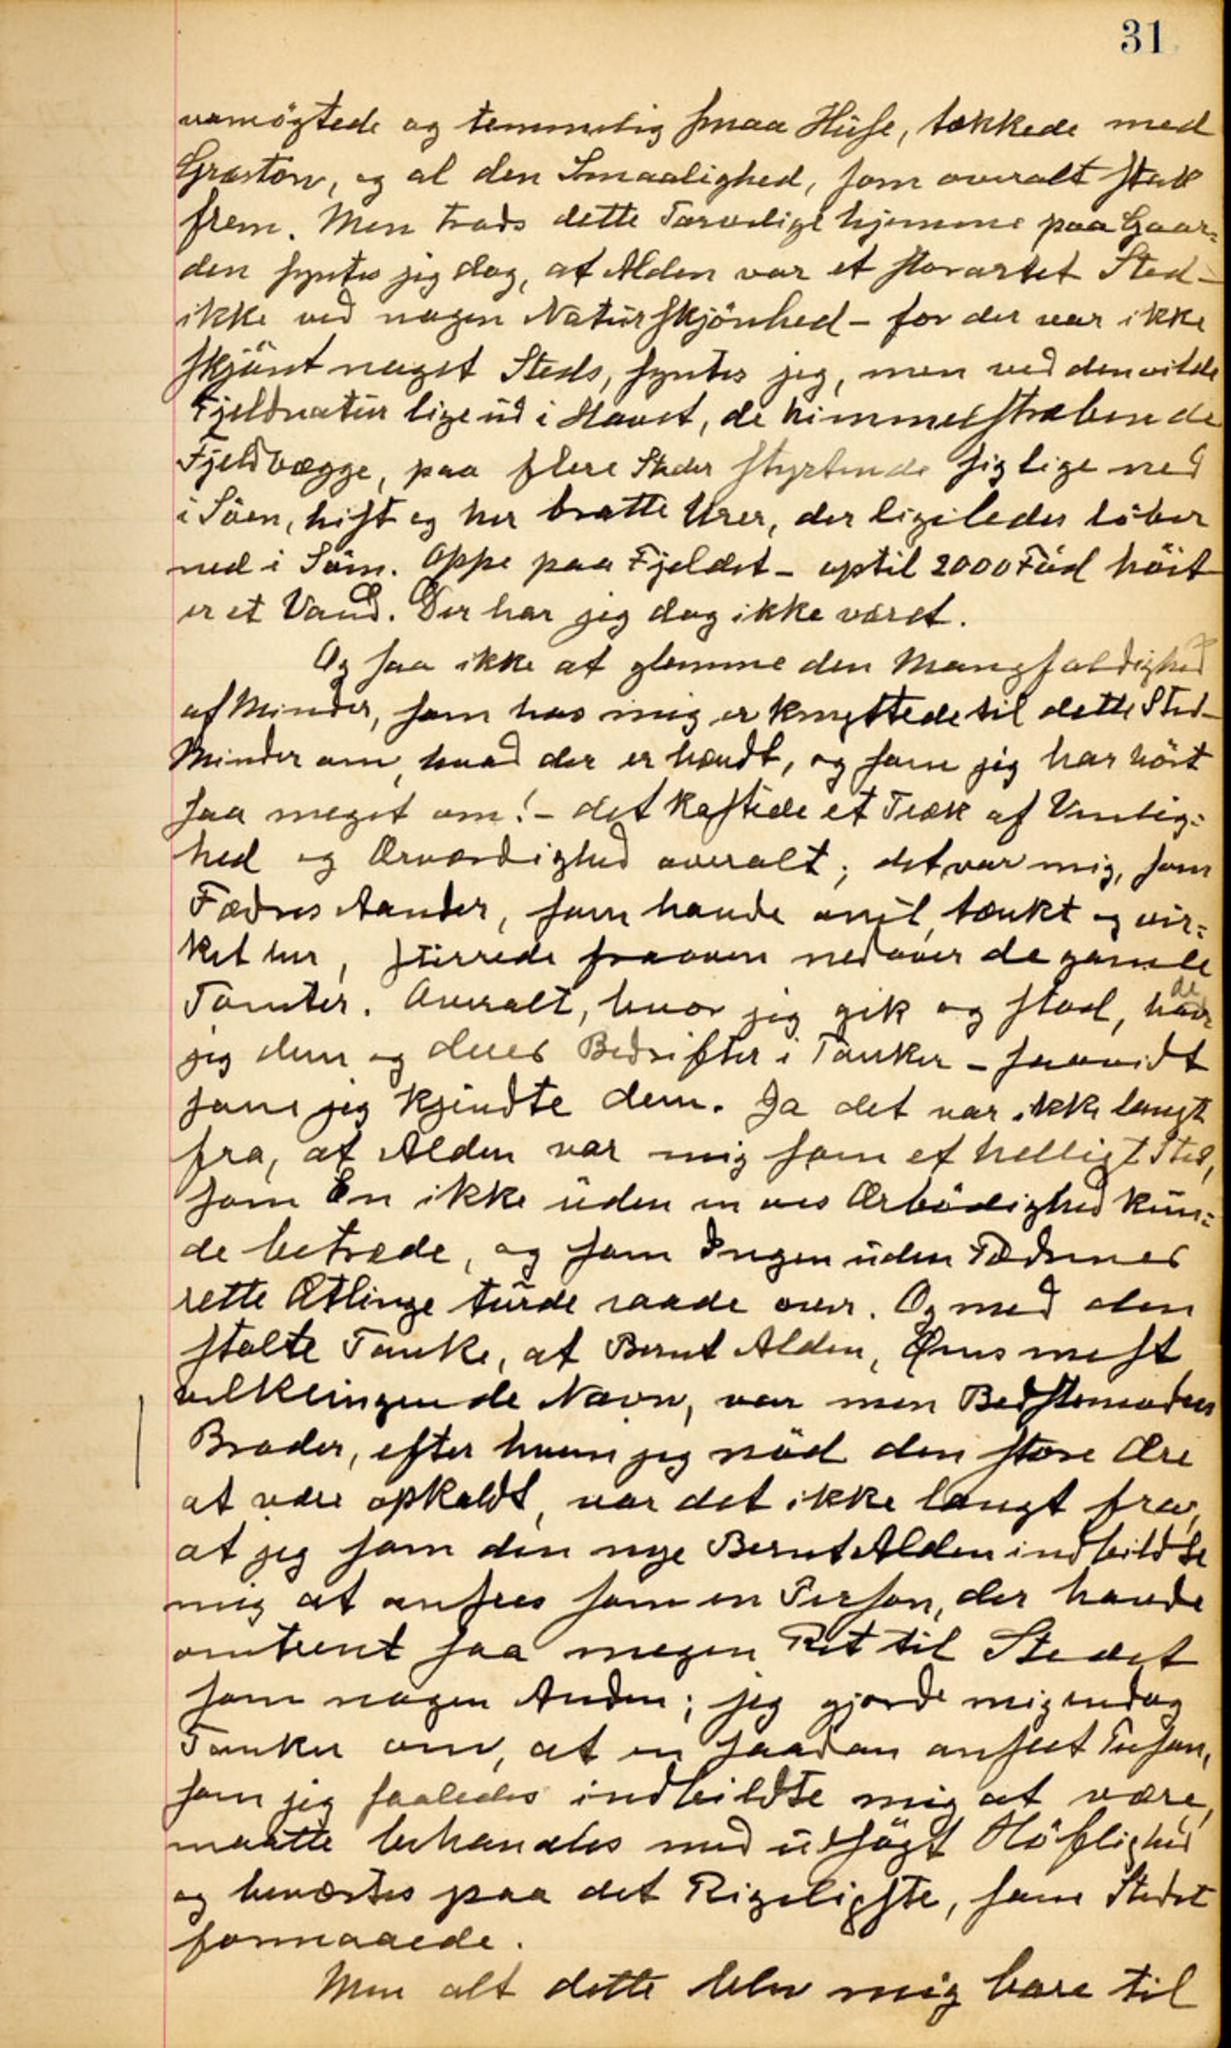 31
vamögtede og temmelig smaa Huse, tækkede med
Græstorv, og al den Smaalighed, som overalt stak
frem. Men trods dette Tarvelige hjemme paa Gaar-
den syntes jeg dog, at Alden var et storartet Sted -
ikke ved nogen Naturskjönhed - for der var ikke
skjönt noget Steds, syntes jeg, men ved den vilde
Fjeldnatur lige ud i Havet, de himmelstræbende
Fjeldvægge, paa flere Steder styrtende sig lige ned
i Söen, hist og her bratte Urer, der ligeledes löber
ned i Söen. Oppe paa Fjeldet - optil 2000 Fod höit
er et Vand. Der har jeg dog ikke været.
Og saa ikke at glemme den Mangfoldighed
af Minder, som hos mig er knyttede til dette Sted -
Minder om, hvad der er hændt, og som jeg har hört
saa meget om! - det kastede et Træk af Venlig-
hed og Ærværdighed overalt; det var mig, som
Fædres Aander, som havde levet, tænkt og vir-
ket her, stirrede fraoven nedover de gamle
Tomter. Overalt, hvor jeg gik og stod, havde
jeg dem og deres Bedrifter i Tanker - saavidt
som jeg kjendte dem. Ja det var ikke langt
fra, at Alden var mig som et helligt Sted,
som En ikke uden en vis Ærbödighed kun-
de betræde, og som Ingen uden Fædrenes
rette Ætlinge turde raade over. Og med den
stolte Tanke, at Bernt Alden, Öens mest
velklingende Navn, var min Bedstemoders
Broder, efter hvem jeg nöd den store Ære
at være opkaldt, var det ikke langt fra,
at jeg som den nye Bernt Alden indbildte
mig at ansees som en Person, der havde
omtrent saa megen Ret til Stedet
som nogen Anden; jeg gjorde mig endog
Tanker om, at en saadan anseet Person,
som jeg saaledes indbildte mig at være,
maatte behandles med udsögt Höflighed
og beværtes paa det Rigeligste, som Stedet
formaaede.
Men alt dette blev mig bare til